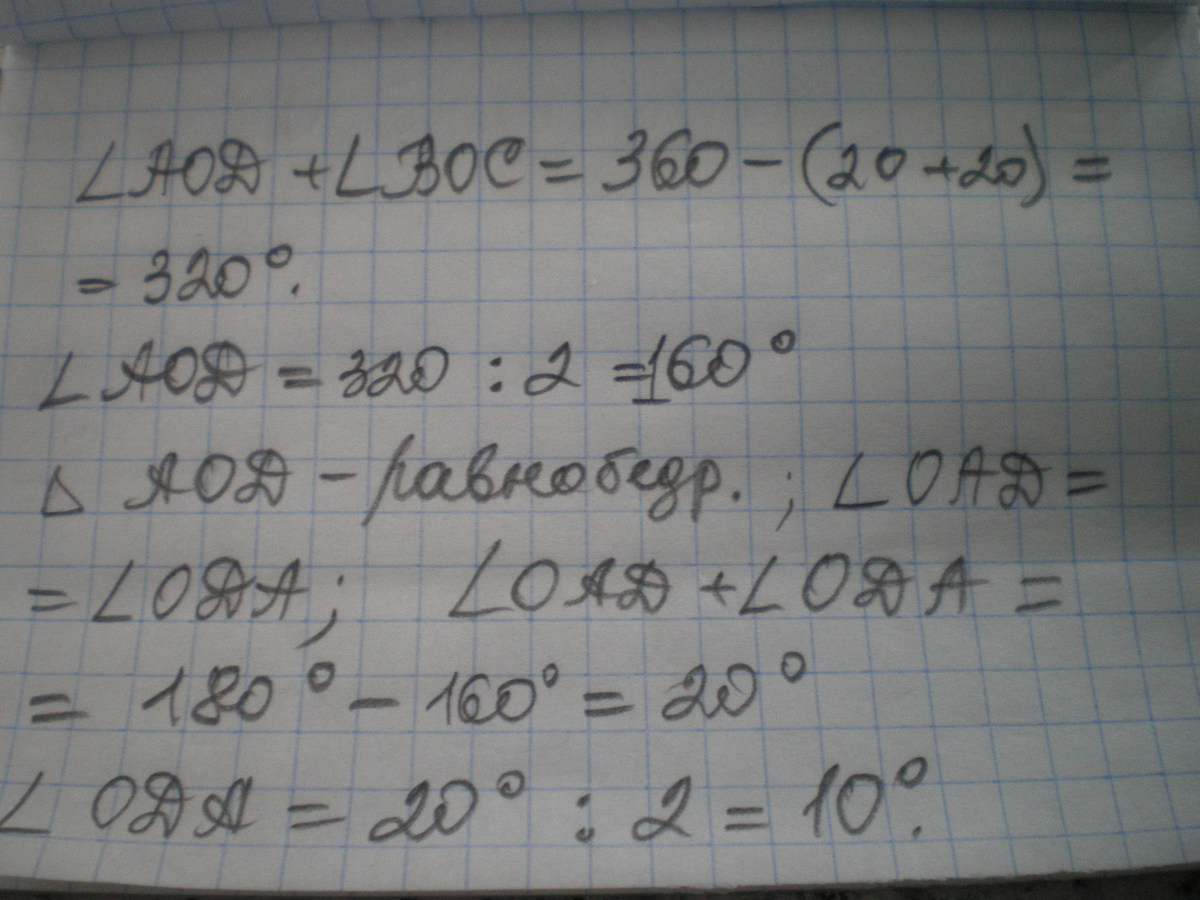 ∠AOD + ∠BOC = 360 - (20 + 20) =
= 320°.
∠AOD = 320 : 2 = 160°
△ AOD - равнобедр. ; ∠OAD =
= ∠ODA; ∠OAD + ∠ODA =
= 180° - 160° = 20°
∠ ODA = 20° : 2 = 10°.